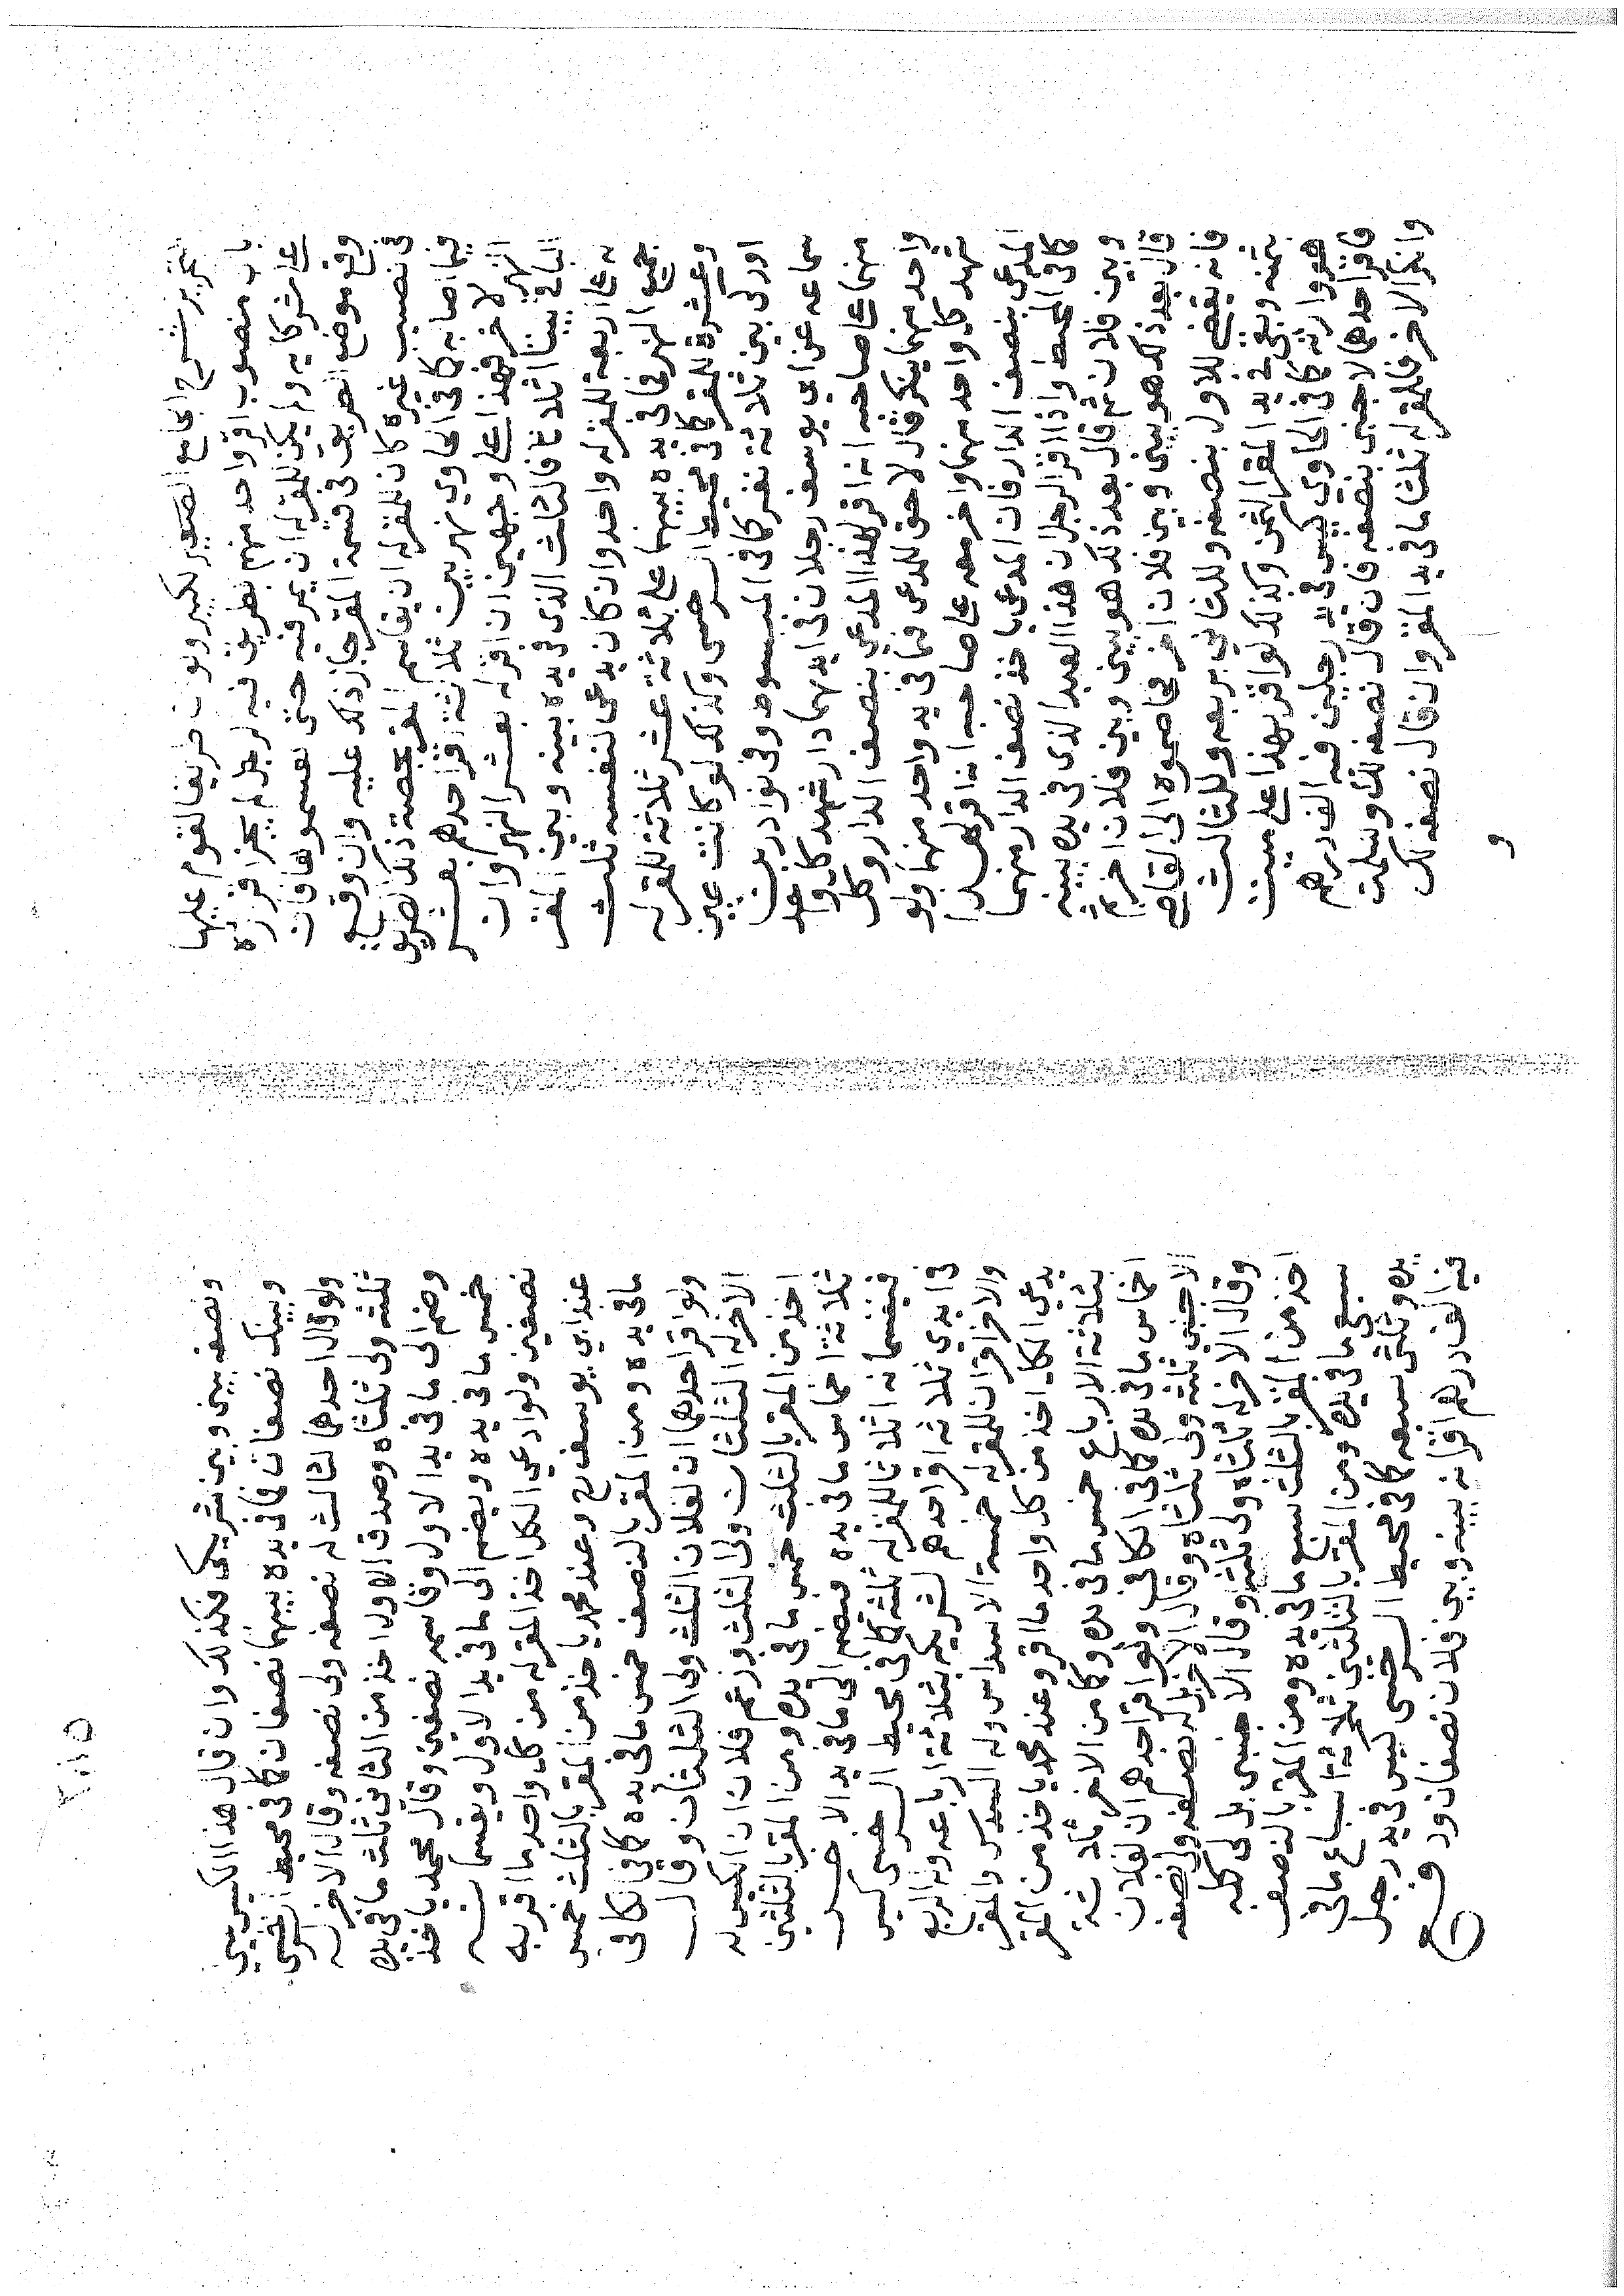 تحرير شرح الجامع الصغير لكبير ولو ان طريقا لقوم عليها
باب منصوب اقر واحد منهم بطريق فيه لرجل لم يجز اقراره
على شركايه ولم يكن للمقر له ان يمر فيه حتى يقسموها فان
وقع موضع الطريق في قسمة المقر جاز ذلك عليه وان وقع
في نصيب غيره كان للمقر له ان يقاسم المقر بحصة ذلك الطريق
فيما اصابه كذا في الحاوي نهر بين ثلاثة اقر احدهم بعشر
النهر لاخر فهذا على وجهين ان اقر له بعشر النهر وان
الباقي بيننا اثلاثا فالثلث الذي في يده بينه وبين المقر
له على اربعة للمقر له واحد وان كان يدعي لنفسه ثلث
جميع النهر فما في يده بينهما على ثلاثة عشر ثلاثة للمقر له
وعشرة للمقر كذا في محيط السرخسي وكذلك لو كانت عين
او ركي بين ثلاثة نفر كذا في المبسوط وفي نوادر بن
سماعه عن ابي يوسف رجلان في ايديهما دار شهد كل واحد
منهما على صاحبه انه اقر لهذا المدعي بنصف الدار وكل
واحد منهما ينكر قال لا حق للمدعي فيما في يد واحد منهما ولو
شهد كل واحد منهما واخر معه على صاحبه انه اقر لهذا
المدعي بنصف الدار فان المدعي ياخذ نصف الدار منهما
كذا في المحيط واذا اقر الرجل ان هذا العبد الذي في يده بينه
وبين فلان ثم قال بعد ذلك هو بيني وبين فلان اخر ثم
قال بعد ذلك هو بيني وبين فلان اخر فخاصموه الى القاضي
فانه يقضي للاول بنصفه وللثاني بربعه وللثالث
بثمنه وبقي في يد المقر الثمن وكذلك لو اقر بهذا على ميت
هو وارثه كذا في الحاوي كيس في يد رجلين فيه الف درهم
فاقر احدهما لاجنبي بنصفه فان قال نصفه لك وسكت
وانكر الاخر فللمقر له ثلثا ما في يد المقر وان قال نصفه لك
و
ونصفه بيني وبين شريكي فكذلك وان قال هذا الكيس بيني
وبينك نصفان فما في يده بينهما نصفان كذا في محيط السرخسي
ولو قال احدهما لثالث له نصفه ولي نصفه وقال الاخر له
ثلثه ولي ثلثاه وصدق الاول اخذ من الثاني ثلث ما في يده
وضم الى ما في يد الاول وقاسمه نصفين وقال محمد ياخذ
خمس ما في يده ويضم الى ما في يد الاول ويقسمانه
نصفين ولو ادعى الكل اخذ المقر له من كل واحد ما اقر به
عند ابي يوسف رح وعند محمد ياخذ من المقر بالثلث خمس
ما في يده ومن المقر بالنصف خمس ما في يده كذا في الكافي
ولو اقر احدهما ان لفلان الثلث ولي الثلثان وقال
الاخر له الثلثان ولي الثلث وزعم فلان ان الكيس له
اخذ من المقر بالثلث خمس ما في يده ومن المقر بالثلثين
ثلاثة اخماس ما في يده فيضم الى ما في يد الاخر
فيقسمانه اثلاثا للمقر له ثلثه كذا في محيط السرخسي كيس
في ايدي ثلاثة اقر احدهم لشريكه بثلاثة ارباعه وله الربع
والاخر اقر ان للمقر له خمسة الاسداس وله السدس والمقر
يدعي الكل اخذ من كل واحد ما اقر وعند محمد ياخذ من المقر
بثلاثة الارباع خمس ما في يده وكذا من الاخر ثلاثة
اخماس ما في يده كذا في الكافي ولو اقر احدهم ان لفلان
الاجنبي ثلثه ولي ثلثاه وقال الاخر بل له نصفه ولي نصفه
وقال الاخر له ثلثاه ولي ثلثه وقال الاجنبي بل لي كله
اخذ من المقر بالثلث سبع ما في يده ومن المقر بالنصف
سبعي ما في يده ومن المقر بالثلثين ثلاثة اسباع ما في
يده وثلثي سبعه كذا في محيط السرخسي كيس في يد رجل
فيه الف درهم اقر انه بينه وبين فلان نصفان ودفع